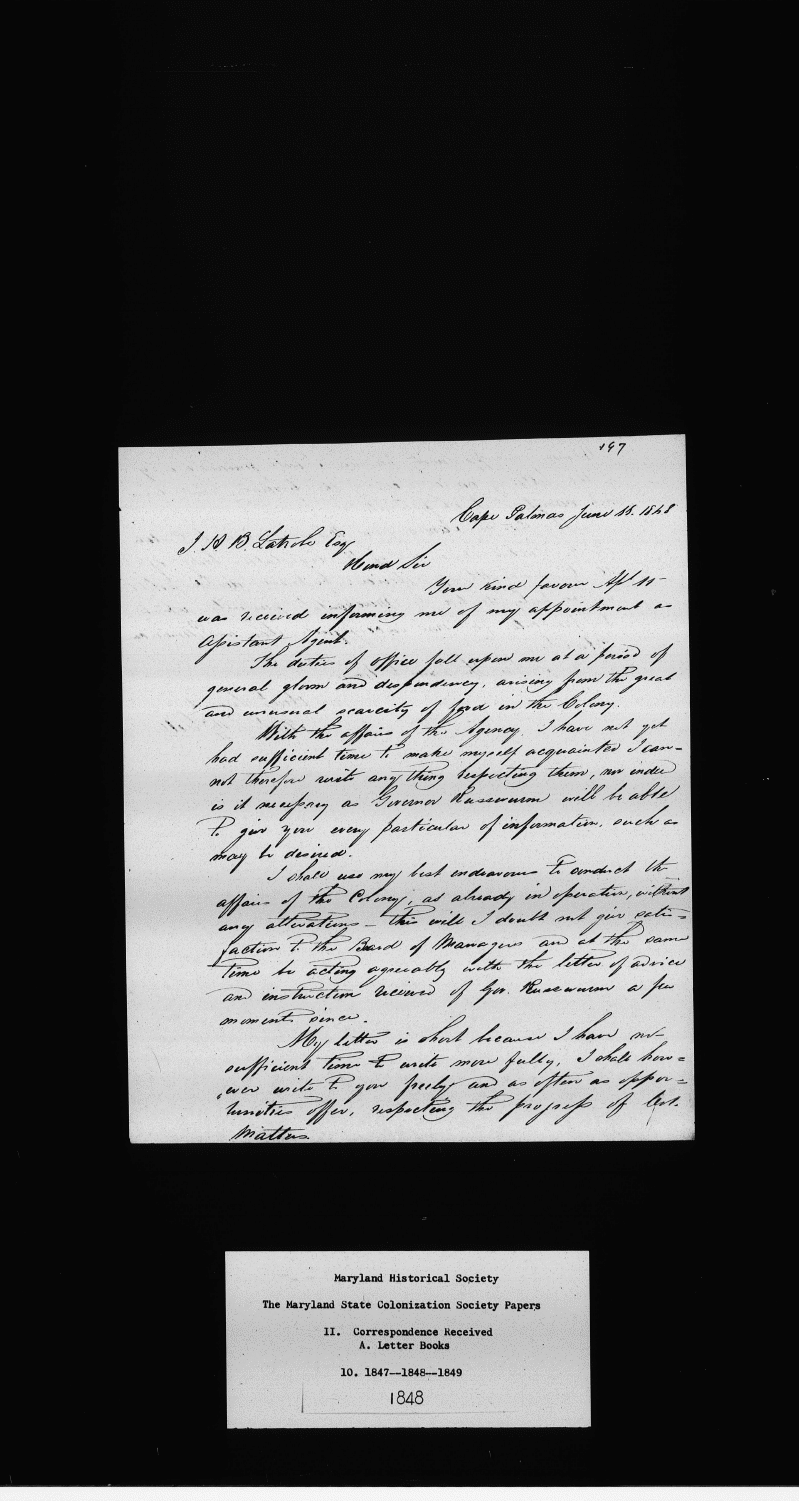 197
Cape Palmas June 18. 1848
J. H. B. Latrobe Esq
Hond Sir
Your kind favour Apl 10
was received informing me of my appointment as
Assistant Agent.
The duties of office fall upon me at a period of
general gloom and despondency, arising from the great
and unusual scarcity of food in the Colony.
With the affairs of the Agency I have not yet
had sufficient time to make myself acquainted I can=
not therefore write any thing respecting them, nor indeed
is it necessary as Governor Russwurm will be able
to give you every particular of information, such as
may be desired.
I shall use my best endeavours to conduct the
affairs of the Colony, as already in operation, without
any alterations – this will I doubt not give satis=
faction to the Board of Managers and at the same
time be acting agreeably with the letter of advice
and instruction received of Gov. Russwurm a few
moments since.
My letter is short because I have not
sufficient time to write more fully, I shall how=
ever write to you freely and as often as oppor=
tunities offer, respecting the progress of Col.
Matters
Maryland Historical Society
The Maryland State Colonization Society Papers
II. Correspondence Received
A. Letter Books
10. 1847--1848--1849
1848